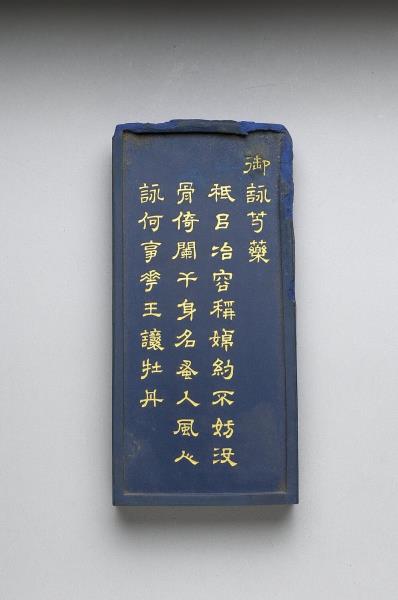 御詠芍藥
祗㠯冶容稱婥約不妨没
骨倚闌干身名蚤入風人
詠何事花王讓牡丹